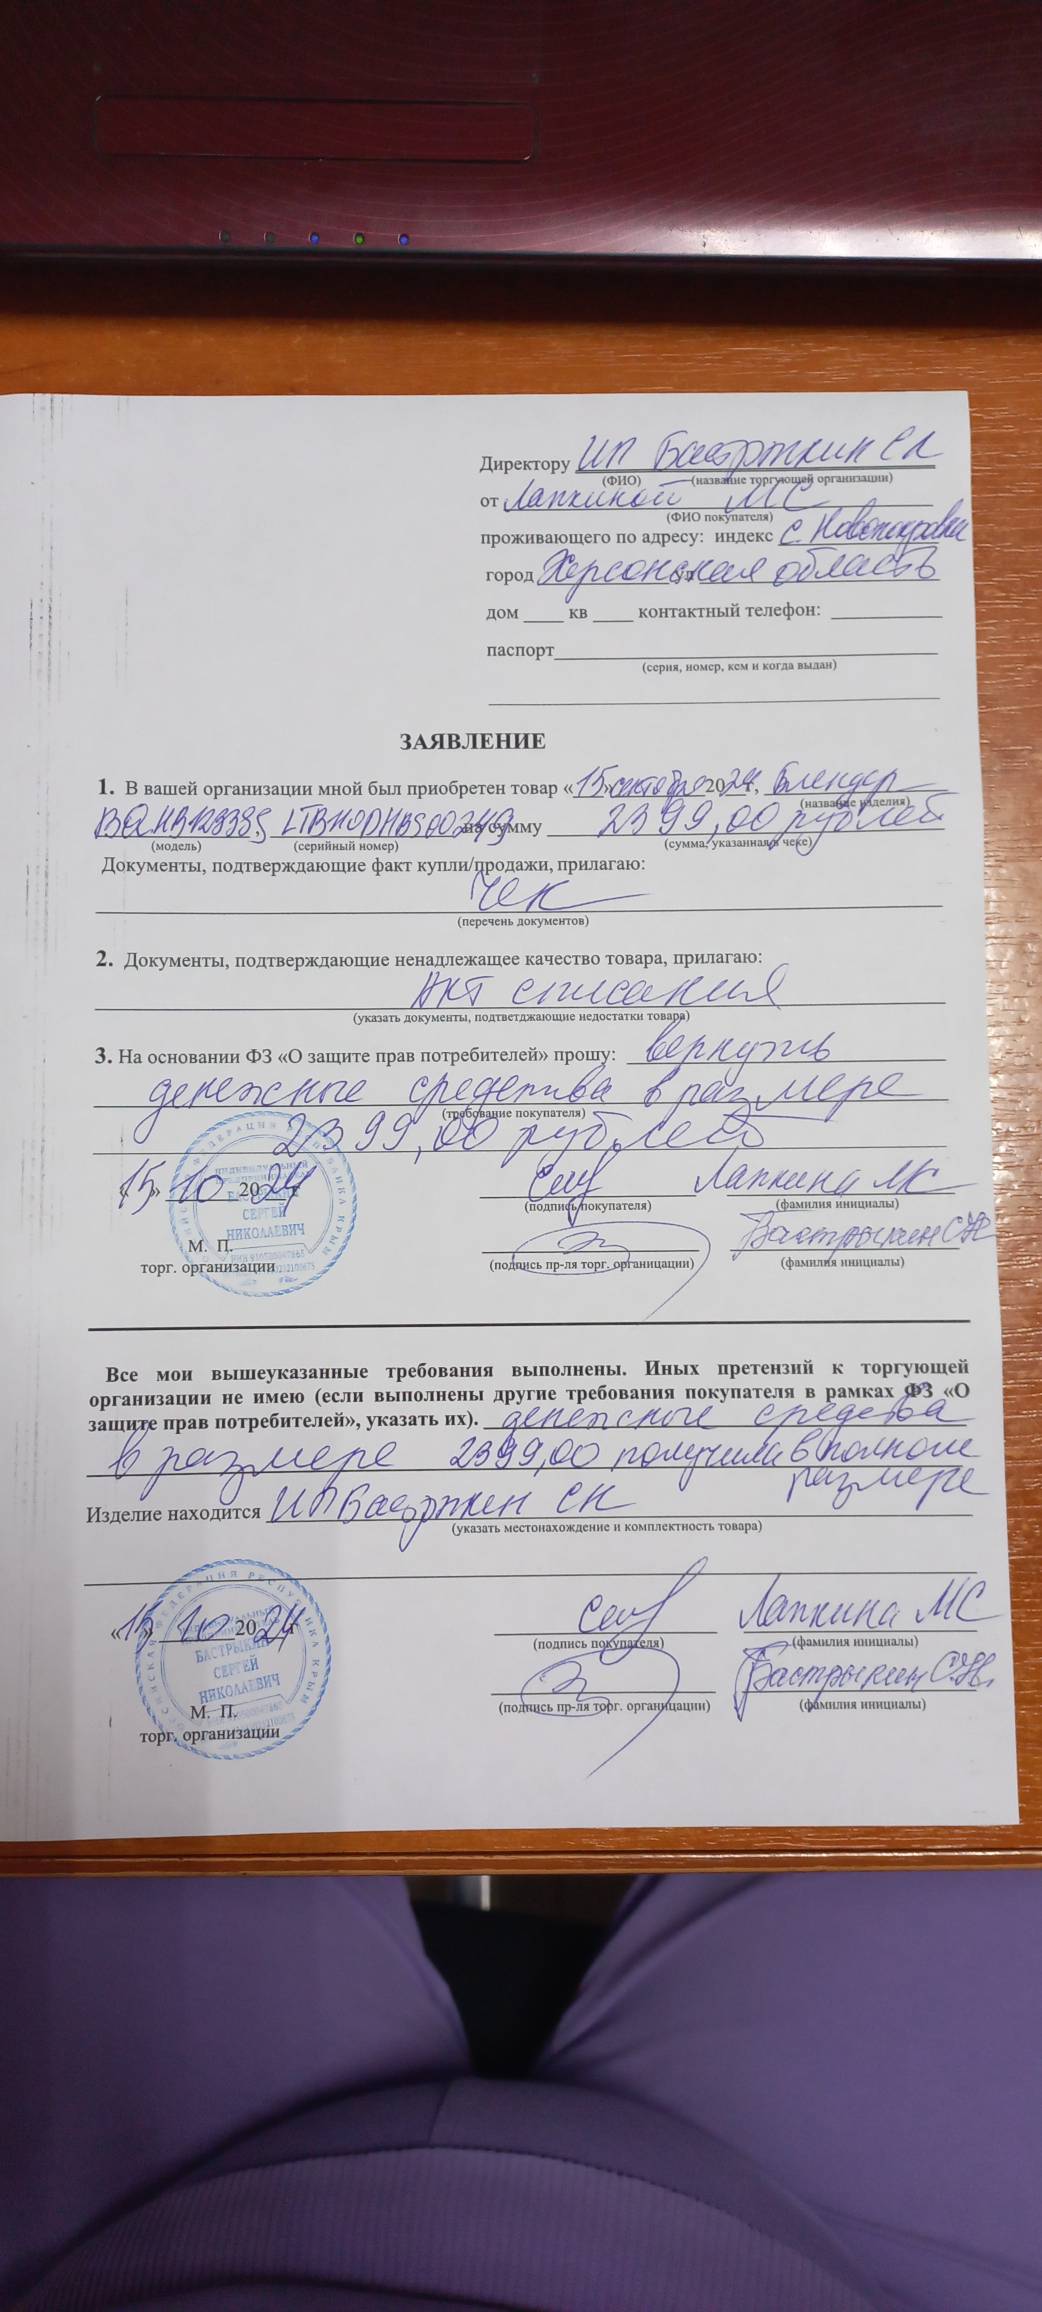 Директору ИП Бастрыкин СН
(ФИО) (название торгующей организации)
от Лапкиной МС
(ФИО покупателя)
проживающего по адресу: индекс с. Новопокровка
город Херсонская область
дом ____ кв ____ контактный телефон: ____
паспорт____
(серия, номер, кем и когда выдан)
ЗАЯВЛЕНИЕ
1. В вашей организации мной был приобретен товар «15» октября 2024г, блендер
(название изделия)
на сумму 2399,00 рублей
(модель) (серийный номер) (сумма, указанная в чеке)
Документы, подтверждающие факт купли/продажи, прилагаю:
чек
(перечень документов)
2. Документы, подтверждающие ненадлежащее качество товара, прилагаю:
Акт списания
(указать документы, подтветджающие недостатки товара)
3. На основании ФЗ «О защите прав потребителей» прошу: вернуть
денежные средства в размере
(требование покупателя)
2399,00 рублей
«15» 10 2024 г
(подпись покупателя) Лапкина МС
(фамилия инициалы)
М. П.
торг. организации
(подпись пр-ля торг. органицации) Бастрыкин С Н
(фамилия инициалы)
ИНДИВИДУАЛЬНЫЙ
ПРЕДПРИНИМАТЕЛЬ
БАСТРЫКИН
СЕРГЕЙ
НИКОЛАЕВИЧ
Все мои вышеуказанные требования выполнены. Иных претензий к торгующей
организации не имею (если выполнены другие требования покупателя в рамках ФЗ «О
защите прав потребителей», указать их). денежные средства
в размере 2399,00 получила в полном
размере
Изделие находится ИП Бастрыкин СН
(указать местонахождение и комплектность товара)
«15» 10 2024 г
(подпись покупателя) Лапкина МС
(фамилия инициалы)
М. П.
торг. организации
(подпись пр-ля торг. органицации) Бастрыкин С.Н.
(фамилия инициалы)
ИНДИВИДУАЛЬНЫЙ
ПРЕДПРИНИМАТЕЛЬ
БАСТРЫКИН
СЕРГЕЙ
НИКОЛАЕВИЧ